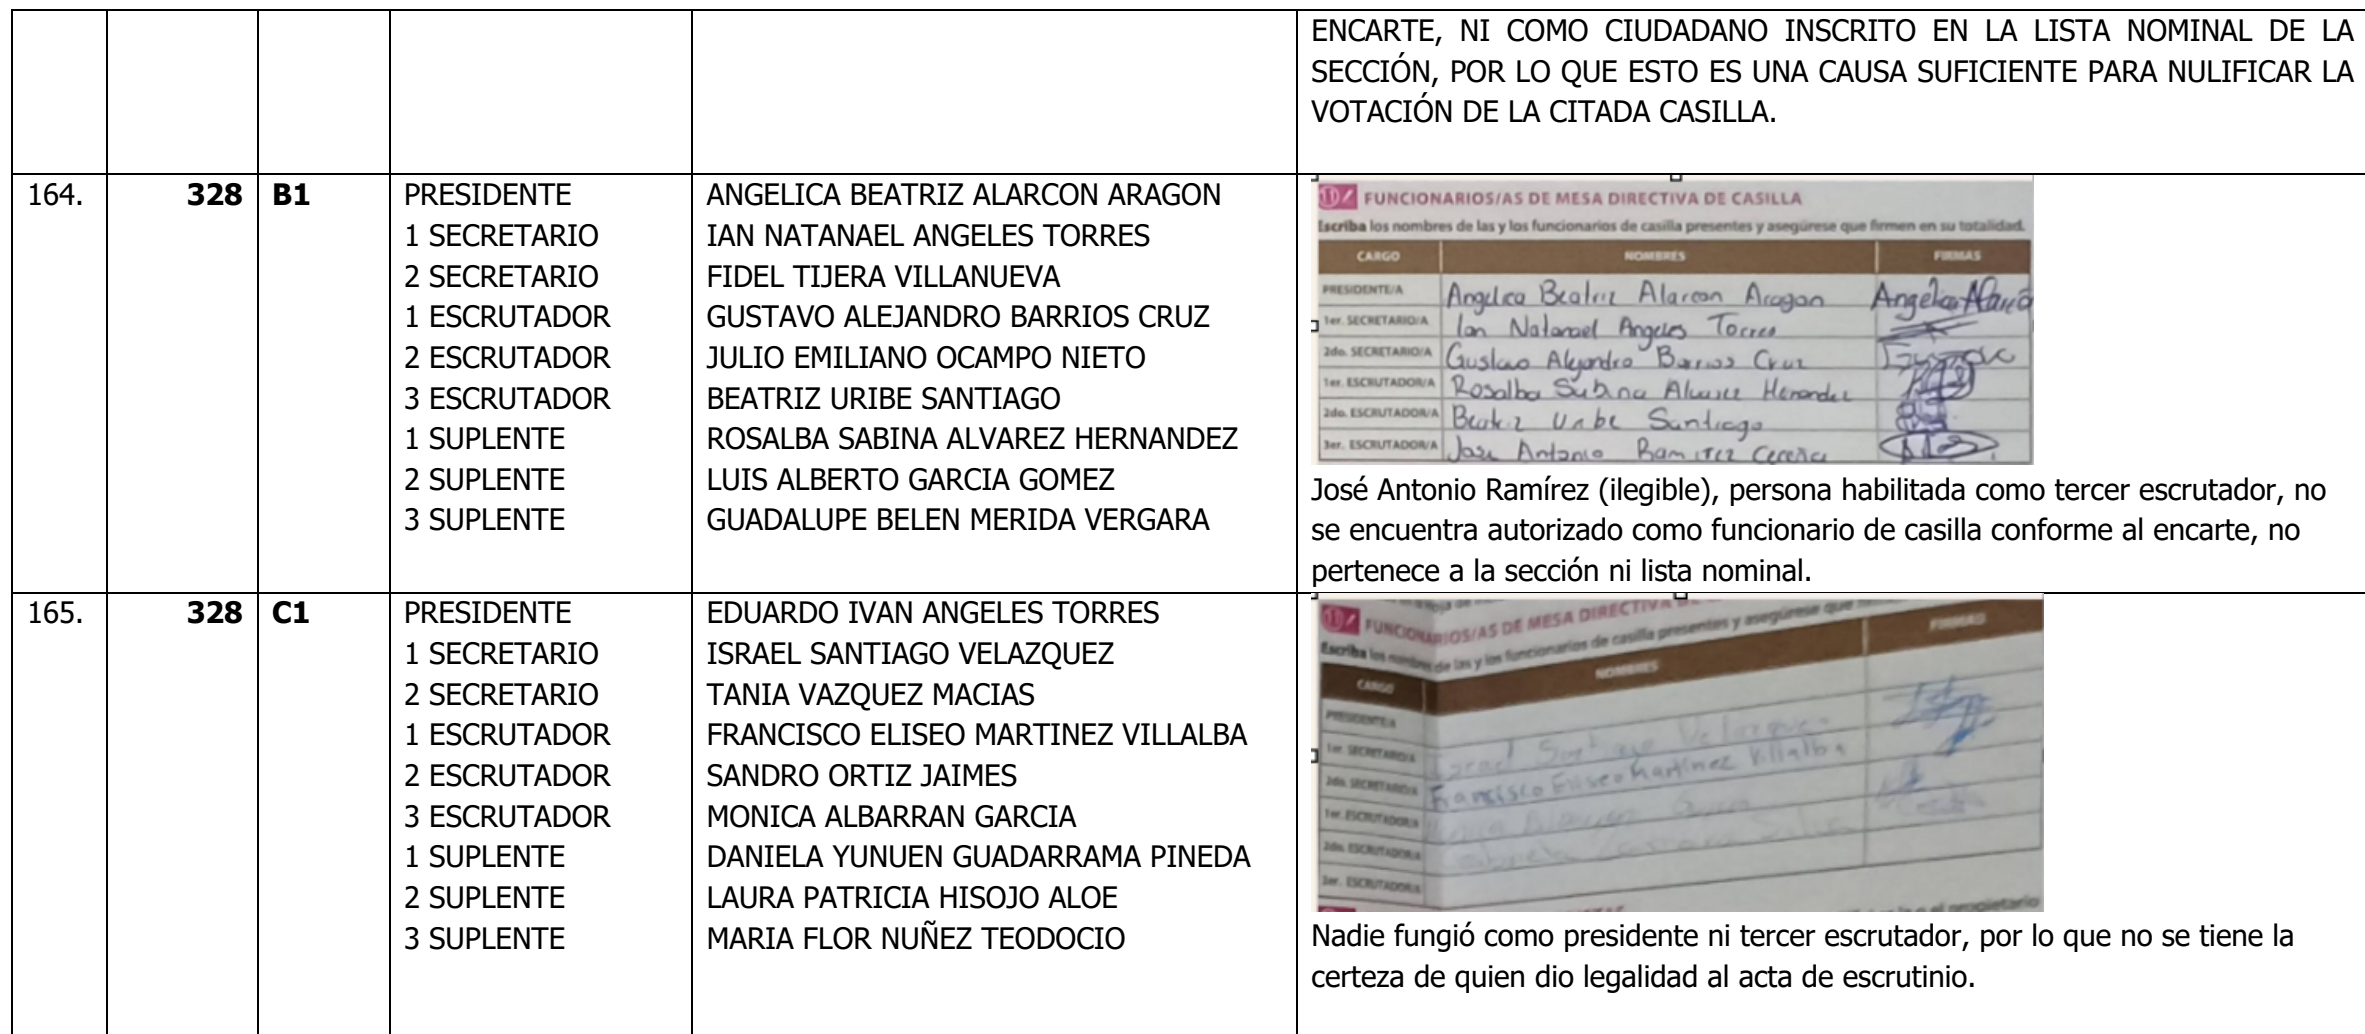 ENCARTE, NI COMO CIUDADANO INSCRITO EN LA LISTA NOMINAL DE LA
SECCIÓN, POR LO QUE ESTO ES UNA CAUSA SUFICIENTE PARA NULIFICAR LA
VOTACIÓN DE LA CITADA CASILLA.
164. 328 B1
PRESIDENTE ANGELICA BEATRIZ ALARCON ARAGON
1 SECRETARIO IAN NATANAEL ANGELES TORRES
2 SECRETARIO FIDEL TIJERA VILLANUEVA
1 ESCRUTADOR GUSTAVO ALEJANDRO BARRIOS CRUZ
2 ESCRUTADOR JULIO EMILIANO OCAMPO NIETO
3 ESCRUTADOR BEATRIZ URIBE SANTIAGO
1 SUPLENTE ROSALBA SABINA ALVAREZ HERNANDEZ
2 SUPLENTE LUIS ALBERTO GARCIA GOMEZ
3 SUPLENTE GUADALUPE BELEN MERIDA VERGARA
11 FUNCIONARIOS/AS DE MESA DIRECTIVA DE CASILLA
Escriba los nombres de las y los funcionarios de casilla presentes y asegúrese que firmen en su totalidad.
CARGO NOMBRES FIRMAS
PRESIDENTE/A Angelica Beatriz Alarcon Aragon
1er. SECRETARIO/A Ian Natanael Angeles Torres
2do. SECRETARIO/A Gustavo Alejandro Barrios Cruz
1er. ESCRUTADOR/A Rosalba Sabina Alvarez Hernandez
2do. ESCRUTADOR/A Beatriz Uribe Santiago
3er. ESCRUTADOR/A Jose Antonio Ramirez
José Antonio Ramírez (ilegible), persona habilitada como tercer escrutador, no
se encuentra autorizado como funcionario de casilla conforme al encarte, no
pertenece a la sección ni lista nominal.
165. 328 C1
PRESIDENTE EDUARDO IVAN ANGELES TORRES
1 SECRETARIO ISRAEL SANTIAGO VELAZQUEZ
2 SECRETARIO TANIA VAZQUEZ MACIAS
1 ESCRUTADOR FRANCISCO ELISEO MARTINEZ VILLALBA
2 ESCRUTADOR SANDRO ORTIZ JAIMES
3 ESCRUTADOR MONICA ALBARRAN GARCIA
1 SUPLENTE DANIELA YUNUEN GUADARRAMA PINEDA
2 SUPLENTE LAURA PATRICIA HISOJO ALOE
3 SUPLENTE MARIA FLOR NUÑEZ TEODOCIO
11 FUNCIONARIOS/AS DE MESA DIRECTIVA
Escriba los nombres de las y los funcionarios de casilla presentes y asegúrese que
CARGO NOMBRES FIRMAS
PRESIDENTE/A
1er. SECRETARIO/A Israel Santiago Velazquez
2do. SECRETARIO/A Francisco Eliseo Martinez Villalba
1er. ESCRUTADOR/A
2do. ESCRUTADOR/A
3er. ESCRUTADOR/A
Nadie fungió como presidente ni tercer escrutador, por lo que no se tiene la
certeza de quien dio legalidad al acta de escrutinio.